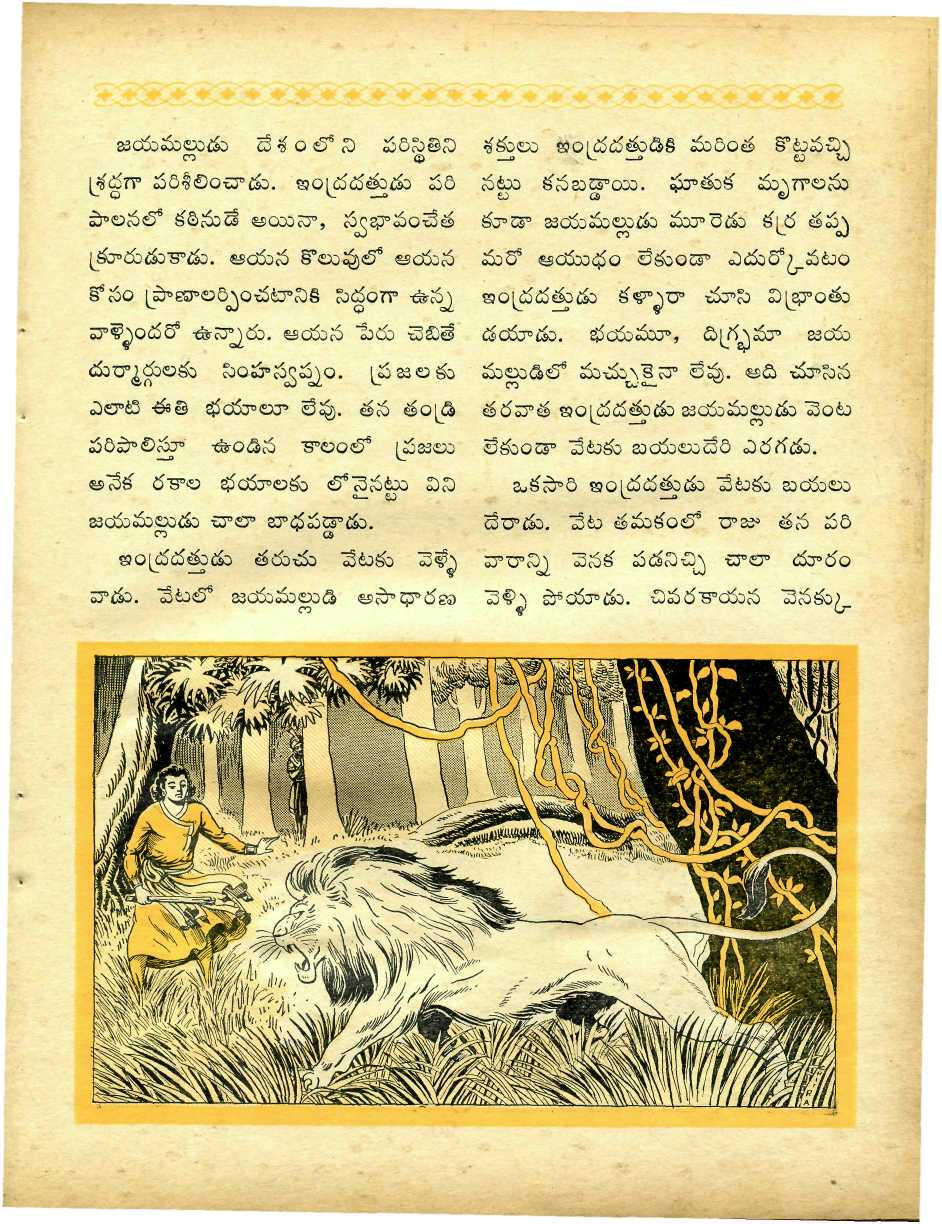 జయమల్లుడు దేశంలోని పరిస్థితిని
శ్రద్ధగా పరిశీలించాడు. ఇంద్రదత్తుడు పరి
పాలనలో కఠినుడే అయినా, స్వభావంచేత
క్రూరుడుకాడు. ఆయన కొలువులో ఆయన
కోసం ప్రాణాలర్పించటానికి సిద్ధంగా ఉన్న
వాళ్ళెందరో ఉన్నారు. ఆయన పేరు చెబితే
దుర్మార్గులకు సింహస్వప్నం. ప్రజలకు
ఎలాటి ఈతి భయాలూ లేవు. తన తండ్రి
పరిపాలిస్తూ ఉండిన కాలంలో ప్రజలు
అనేక రకాల భయాలకు లోనైనట్టు విని
జయమల్లుడు చాలా బాధపడ్డాడు.
ఇంద్రదత్తుడు తరుచు వేటకు వెళ్ళే
వాడు. వేటలో జయమల్లుడి అసాధారణ
శక్తులు ఇంద్రదత్తుడికి మరింత కొట్టవచ్చి
నట్టు కనబడ్డాయి. ఘాతుక మృగాలను
కూడా జయమల్లుడు మూరెడు కర్ర తప్ప
మరో ఆయుధం లేకుండా ఎదుర్కోవటం
ఇంద్రదత్తుడు కళ్ళారా చూసి విభ్రాంతు
డయాడు. భయమూ, దిగ్భ్రమా జయ
మల్లుడిలో మచ్చుకైనా లేవు. అది చూసిన
తరవాత ఇంద్రదత్తుడు జయమల్లుడు వెంట
లేకుండా వేటకు బయలుదేరి ఎరగడు.
ఒకసారి ఇంద్రదత్తుడు వేటకు బయలు
దేరాడు. వేట తమకంలో రాజు తన పరి
వారాన్ని వెనక పడనిచ్చి చాలా దూరం
వెళ్ళి పోయాడు. చివరకాయన వెనక్కు